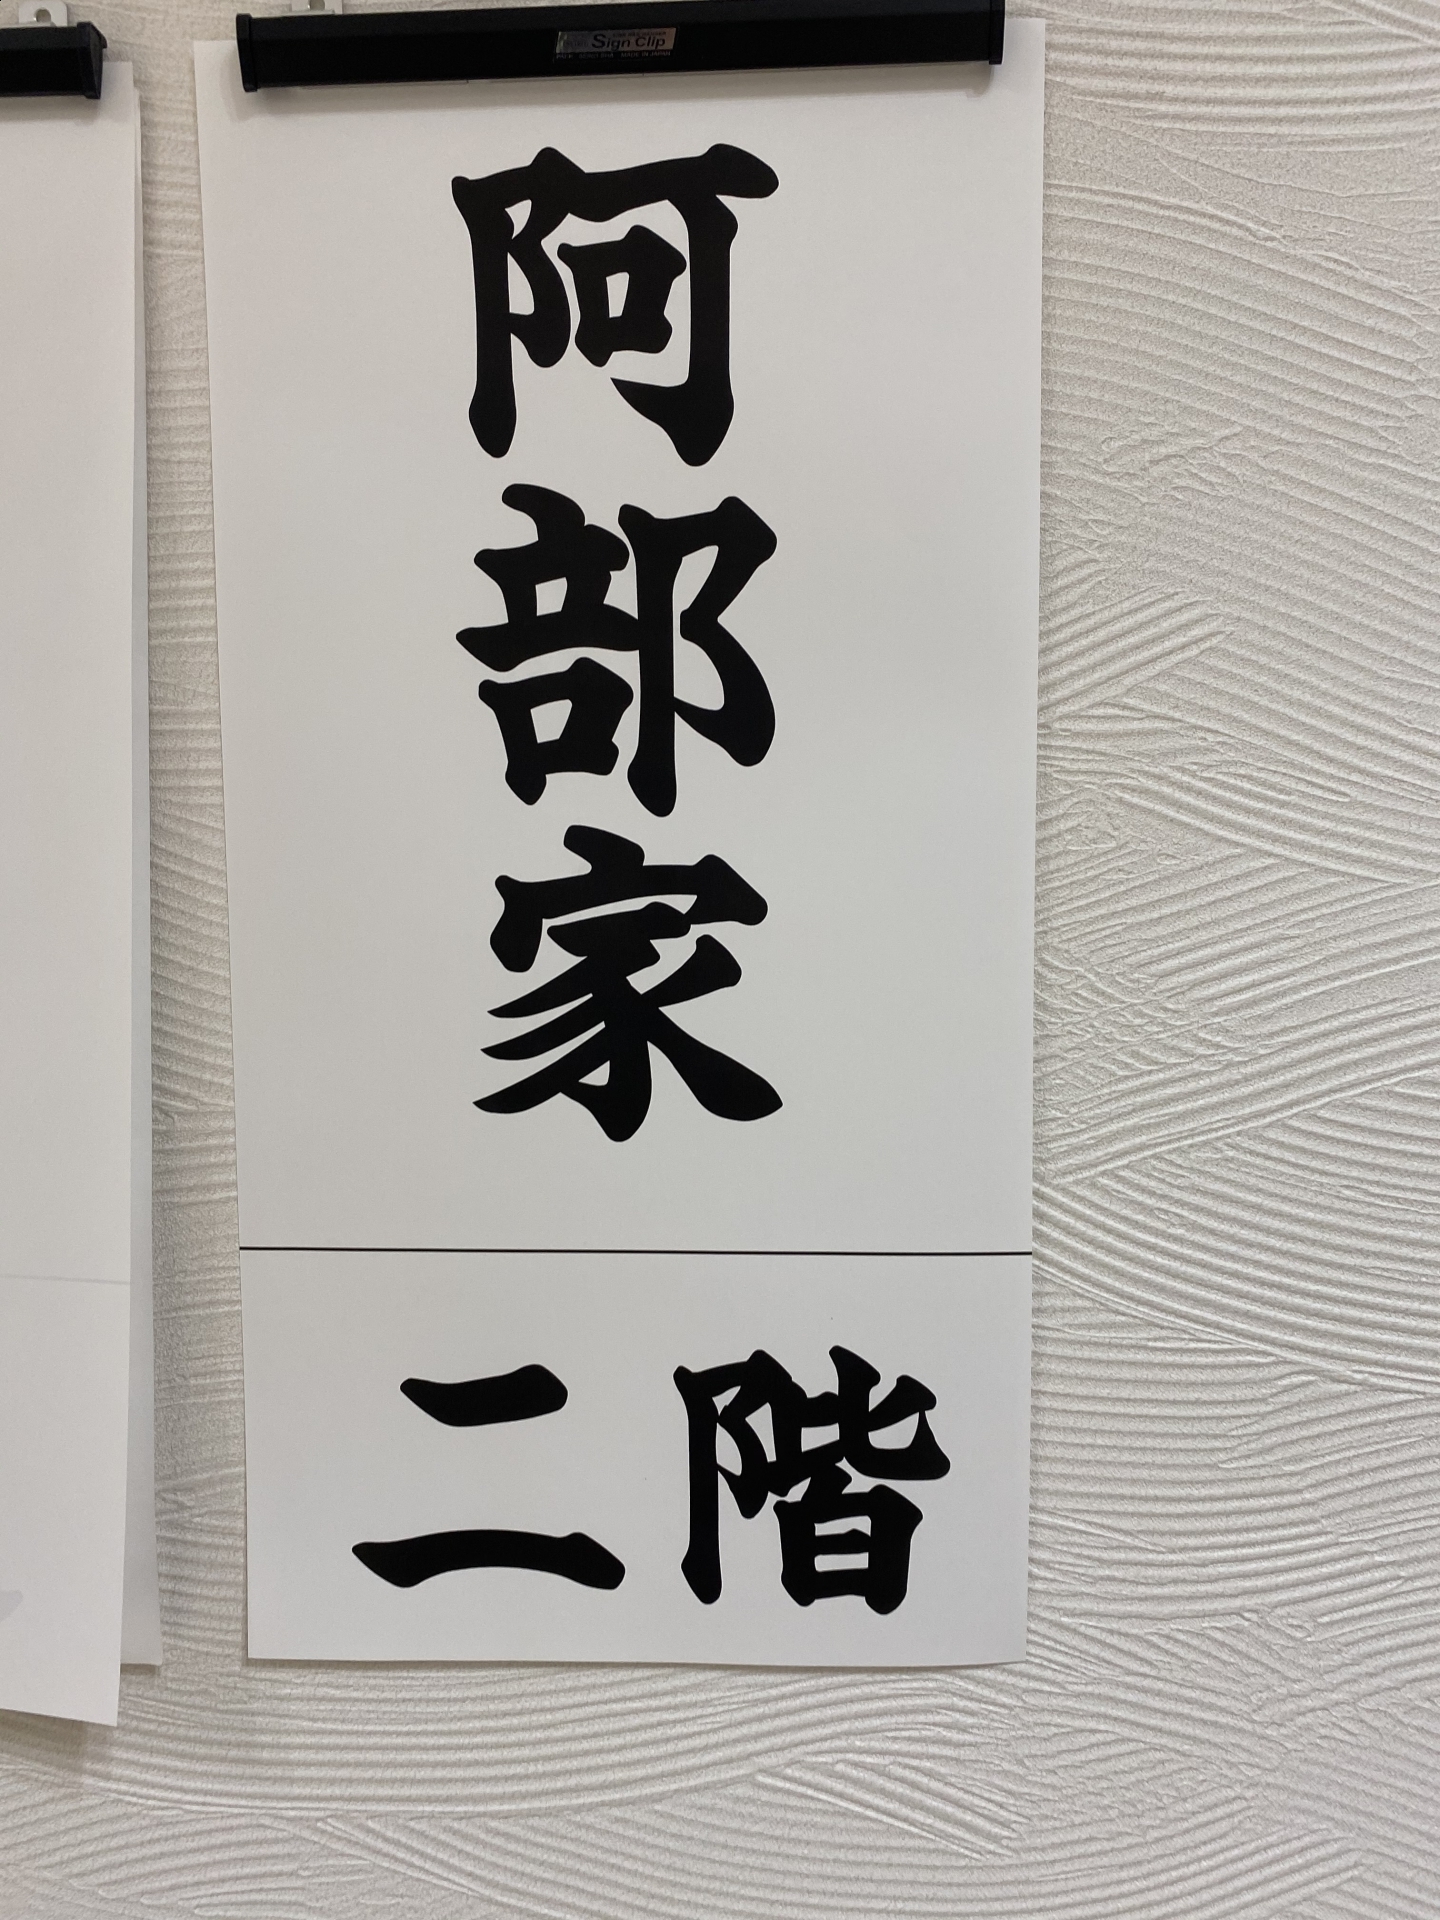 Sign Clip
MADE IN JAPAN
阿部家
二階